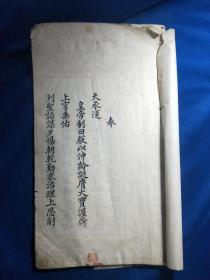 奉
天承運
皇帝制曰朕以沖齡誕膺大寶深荷
上穹垂佑
列聖詒謀夕惕朝乾勤求治理上思嗣